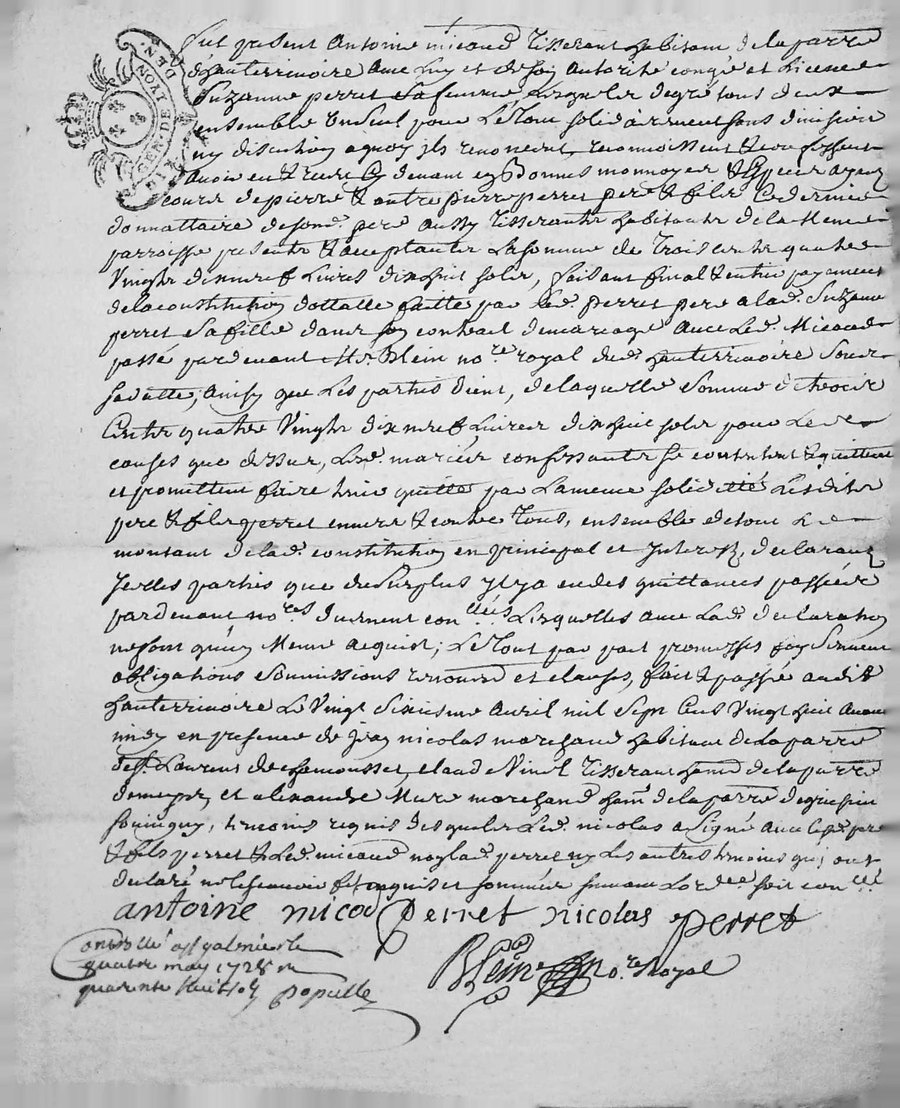 GEN. DE LYON
fut present Antoine micaud Tisserant habitant de la parre
d'hauterrivoire Avec Luy et de son autorité congé et Licence
Suzanne perret Sa femme Lesquels de gré tous deux
ensemble Un Seul pour Le Tout solidairement sans division
ny discution a quoy ils renoncent, reconnoissent et confessent
Avoir eu et receu cy devant en Bonnes monnoyes et Especes ayant
cours de pierre et autre pierre perret pere et fils Ce dernier
donnattaire de sond. pere Aussy Tisserants habitants de la Meme
parroisse presents et acceptants La somme de Trois cents quatre
Vingts dix neuf Livres dix huit sols, faisant final et entier payement
de la constitution dottalle faitte par led. perret pere a lad. Suzanne
perret Sa fille dans son contrait de mariage avec Led. Micaud
passé pardevant Mr. Blein nore. royal dud. hauterrivoire Sous
sa datte, Ainsy que Les parties dient, de laquelle somme de trois
Cents quatre Vingts dix neuf Livres dix huit sols pour Les
causes que dessus, Lesd. mariés confessants se contentent et quittent
et promettent faire tenir quitte par La meme solidité Lesdits
pere et fils perret envers et contre Tous, ensemble de tout Le
montant de lad. constitution en principal et Interests, declarants
Icelles parties que du Surplus Il y a eu des quittances passées
pardevant nores. duement conllées Lesquelles avec Lad. declaration
ne font qu'un Meme acquist; Le Tout par part promesses foy Serment
obligations Soumissions renond. et clauses, fait et passé audit
hauterrivoire Le Vingt Sixieme Avril mil Sept Cens Vingt huit Avant
midy en presence de Jean nicolas marchand habitant de La parre
de St. Laurent de chamousset, claude Vinol Tisserant habit. de la parre
de meys, et alexandre Mure marchand habit. de la parre de grezieu
souvigny, temoins requis desquels Led. nicolas a Signé Avec lesd. pere
et fils perret et Led. micaud non lad. perret ny Les autres temoins qui ont
declaré ne le scavoir faire enquis et sommés suivant L'ordce. soit conllé
antoine micod perret nicolas perret
Controllé a St galmier le
quatre may 1728 R
quarente huit sols populle
Blein nore Royal